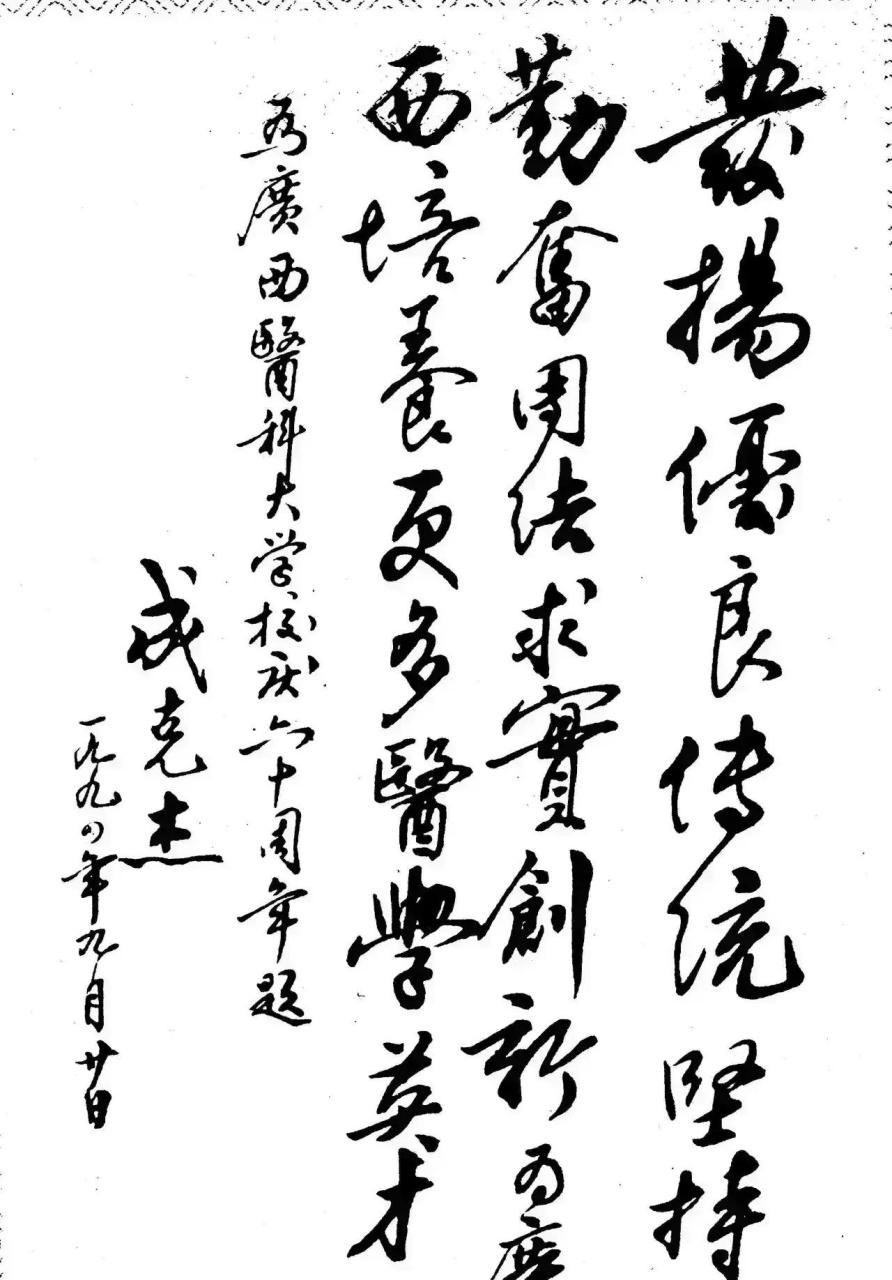 發揚優良傳统坚持
勤奮團结求實創新为廣
西培養更多醫學英才
为廣西醫科大学校庆六十周年题
成克杰
一九九四年九月廿日